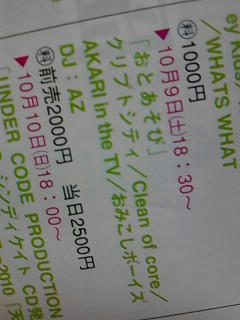 ey Kids/
/WHA'S WHAT
㊖1000円
▶10月9日(土)18：30〜
「おとあそび」
クリプトシティ/Clean of core/
AKARI in the TV/おみこしボーイズ
DJ：AZ
㊖前売2000円 当日2500円
▶10月10日(日)18：00〜
「UNDER CODE PRODUCTION
シンディケイト CD発
2010「天